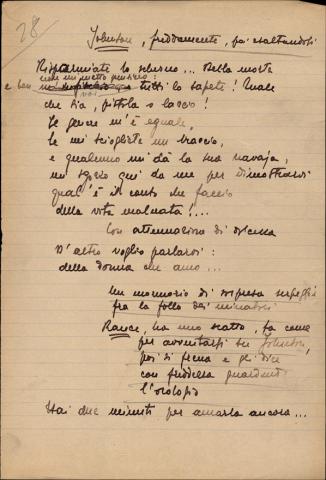 28
Johnson, freddamente, poi esaltandosi
Risparmiate lo scherno... Della morte
non mi metto pensiero:
e ben voi tutti lo sapete! Quale
che sia, pistola o laccio!
Le genere m'è eguale,
Se mi sciogliete un braccio,
e qualcuno mi dà la sua navaja,
mi sgozzo qui da me per dimostrarvi
qual'è il conto che faccio
della vita malnata!...
Con attenuazione di
D'altro voglio parlarvi:
della donna che amo...
Un mormorio di sorpresa serpeggia
fra la folla dei minatori
Rance, ha uno scatto, fa come
per avventarsi su Johnson,
poi si frena e gli dice
con freddezza guardando
l'orologio
Hai due minuti per amarla ancora...